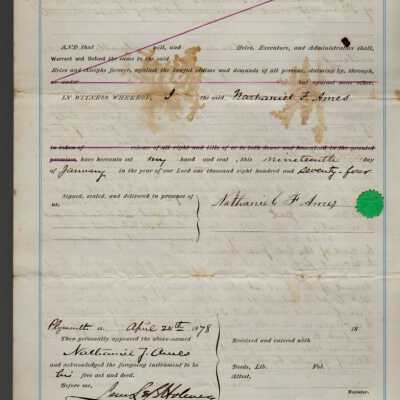 AND that will, and Heirs, Executors, and Administrators shall,
Warrant and Defend the same to the said
Heirs and Assigns forever, against the lawful claims and demands of all persons, claiming by, through,
or under but against none other.
IN WITNESS WHEREOF, I the said Nathaniel F. Ames
in token of release of all right and title of or to both dower and homestead in the granted
premises, have hereunto set my hand and seal, this nineteenth day
of January in the year of our Lord one thousand eight hundred and seventy-four
Signed, sealed, and delivered in presence of
us,
Nathaniel F Ames
Plymouth ss. April 28th 1878
Then personally appeared the above-named
Nathaniel F. Ames
and acknowledged the foregoing instrument to be
his free act and deed.
Before me,
18
Received and entered with
Deeds, Lib. Fol.
Attest,
Register.